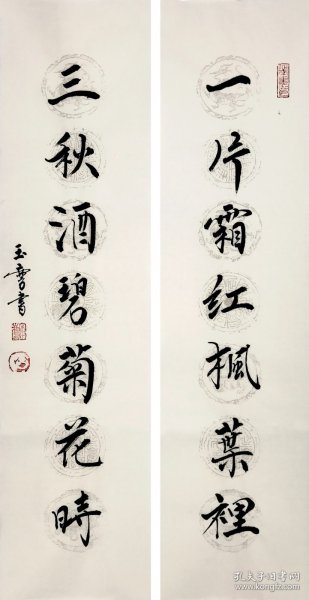 一片霜红楓葉裡
三秋酒碧菊花時
玉雪書
孔夫子旧书网